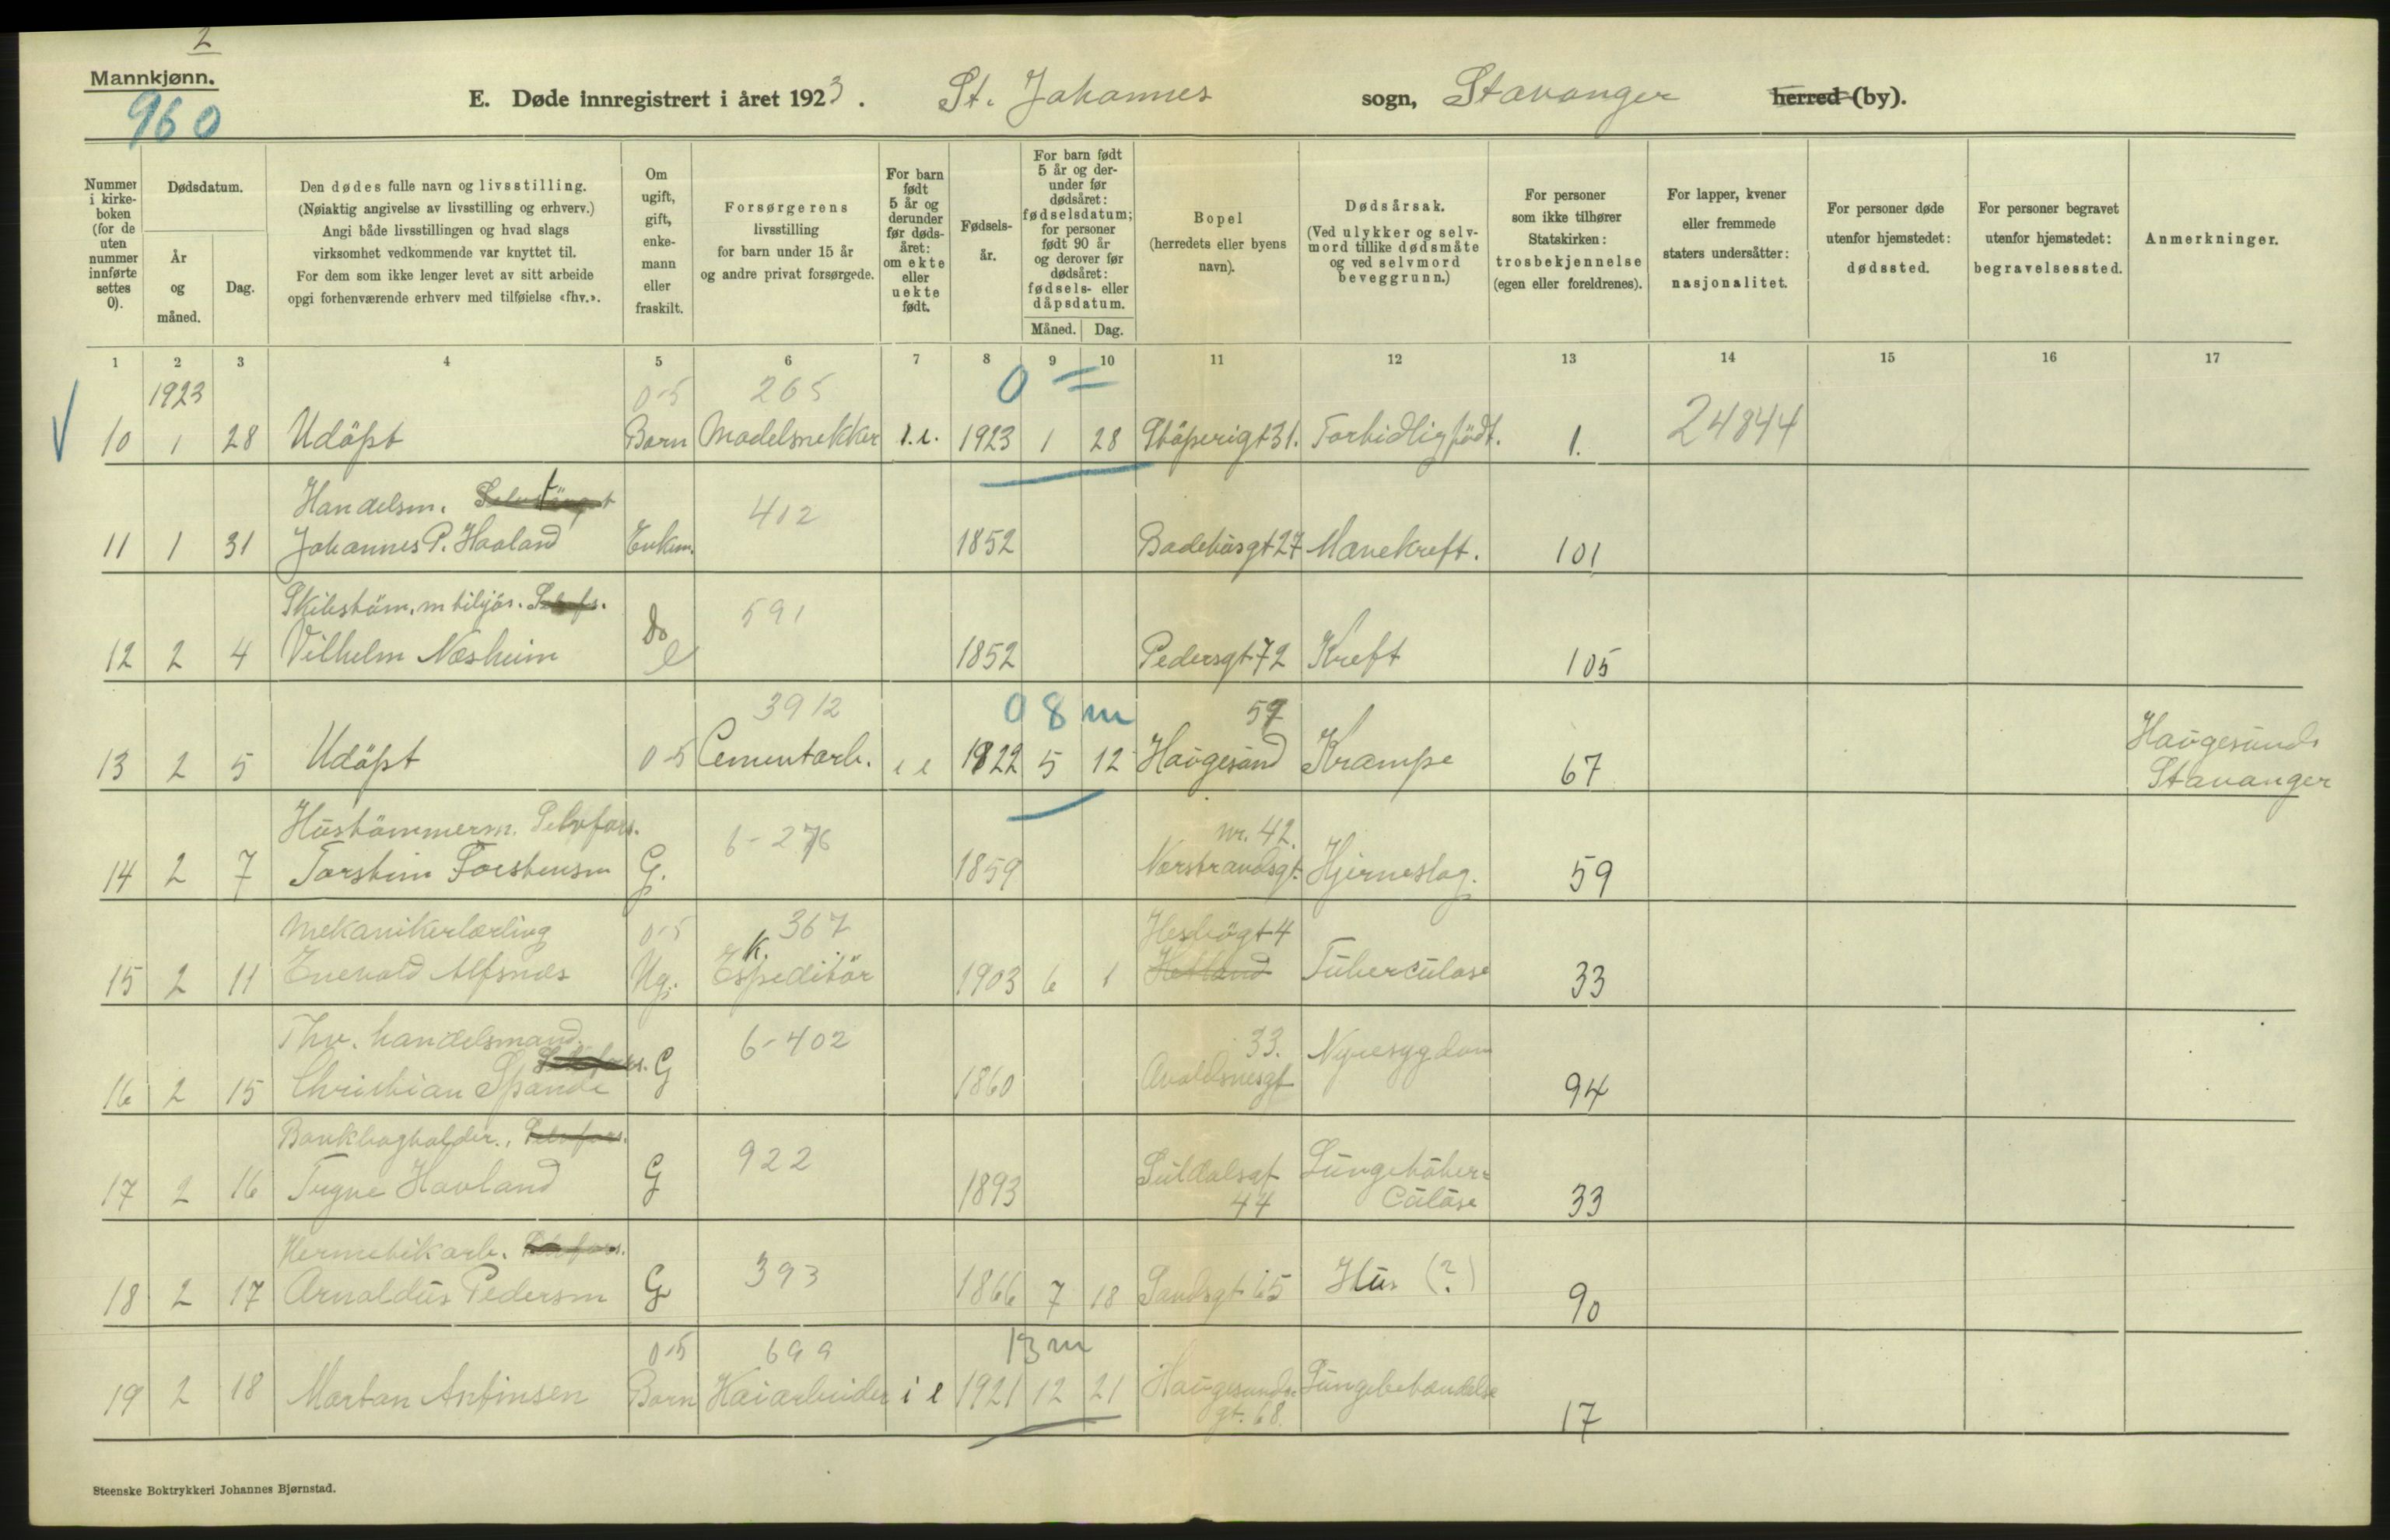 2
Mannkjønn.
960
E. Døde innregistrert i året 1923. St. Johannes sogn, Stavanger herred (by).
Nummer i kirkeboken (for de uten nummer innførte settes 0).
Dødsdatum.
År og måned.
Dag.
Den dødes fulle navn og livsstilling.
(Nøiaktig angivelse av livsstilling og erhverv.)
Angi både livsstillingen og hvad slags
virksomhet vedkommende var knyttet til.
For dem som ikke lenger levet av sitt arbeide
opgi forhenværende erhverv med tilføielse «fhv.».
Om ugift, gift, enkemann eller fraskilt.
Forsørgerens
livsstilling
for barn under 15 år
og andre privat forsørgede.
For barn født 5 år og derunder før dødsåret: om ekte eller uekte født.
Fødselsår.
For barn født 5 år og derunder før dødsåret: fødselsdatum; for personer født 90 år og derover før dødsåret: fødsels- eller dåpsdatum.
Måned. Dag.
Bopel
(herredets eller byens navn).
Dødsårsak.
(Ved ulykker og selvmord tillike dødsmåte og ved selvmord beveggrunn.)
For personer
som ikke tilhører
Statskirken:
trosbekjennelse
(egen eller foreldrenes).
For lapper, kvener
eller fremmede
staters undersåtter:
nasjonalitet.
For personer døde
utenfor hjemstedet:
dødssted.
For personer begravet
utenfor hjemstedet:
begravelsessted.
Anmerkninger.
1 2 3 4 5 6 7 8 9 10 11 12 13 14 15 16 17
1923 0-5 265 0 =
10 1 28 Udöpt Barn Modelsnekker 1923 1 28 Stöperigt 31. Fortidlig födt. 1. 24844
Handelsm. 412
11 1 31 Johannes P. Haaland Enkem. 1852 Badehusgt 27 Mavekreft. 101
Skibstöm. m 591
12 2 4 Vilhelm Næsheim Do e 1852 Pedersgt 72 Kreft 105
3912 0 8 m 57
13 2 5 Udöpt 0-5 Cementarb. e e 1922 5 12 Haugesund Krampe 67 Haugesund
Stavanger
Hustömmerm. Selvfors. 6-276 nr. 42.
14 2 7 Torstein Torstensen G. 1859 Nørstrandsgt. Hjerneslag. 59
Mekanikerlærling 0-5 367 Hesbögt 4
15 2 11 Enevold Alfsnes Ug. Ekspeditör 1903 6 1 Hetland Tuberculose 33
Fhv. handelsmand. 6-402 33. Nyresygdom
16 2 15 Christian Spande G 1860 Avaldsnesgt 94
Bankbogholder., Selvfors. 922 Suldalsgt Lungetuber=
17 2 16 Trygve Havland G 1893 44 culose 33
Hermetikarb. Selvfors. 393
18 2 17 Arnoldus Pedersen G 1866 7 18 Sandsgt 65 (?) 90
0-5 699 13 m
19 2 18 Martan Antinsen Barn Kaiarbeider i e 1921 12 21 Haugesunds Lungebetændelse
gt. 68. 17
Steenske Boktrykkeri Johannes Bjørnstad.